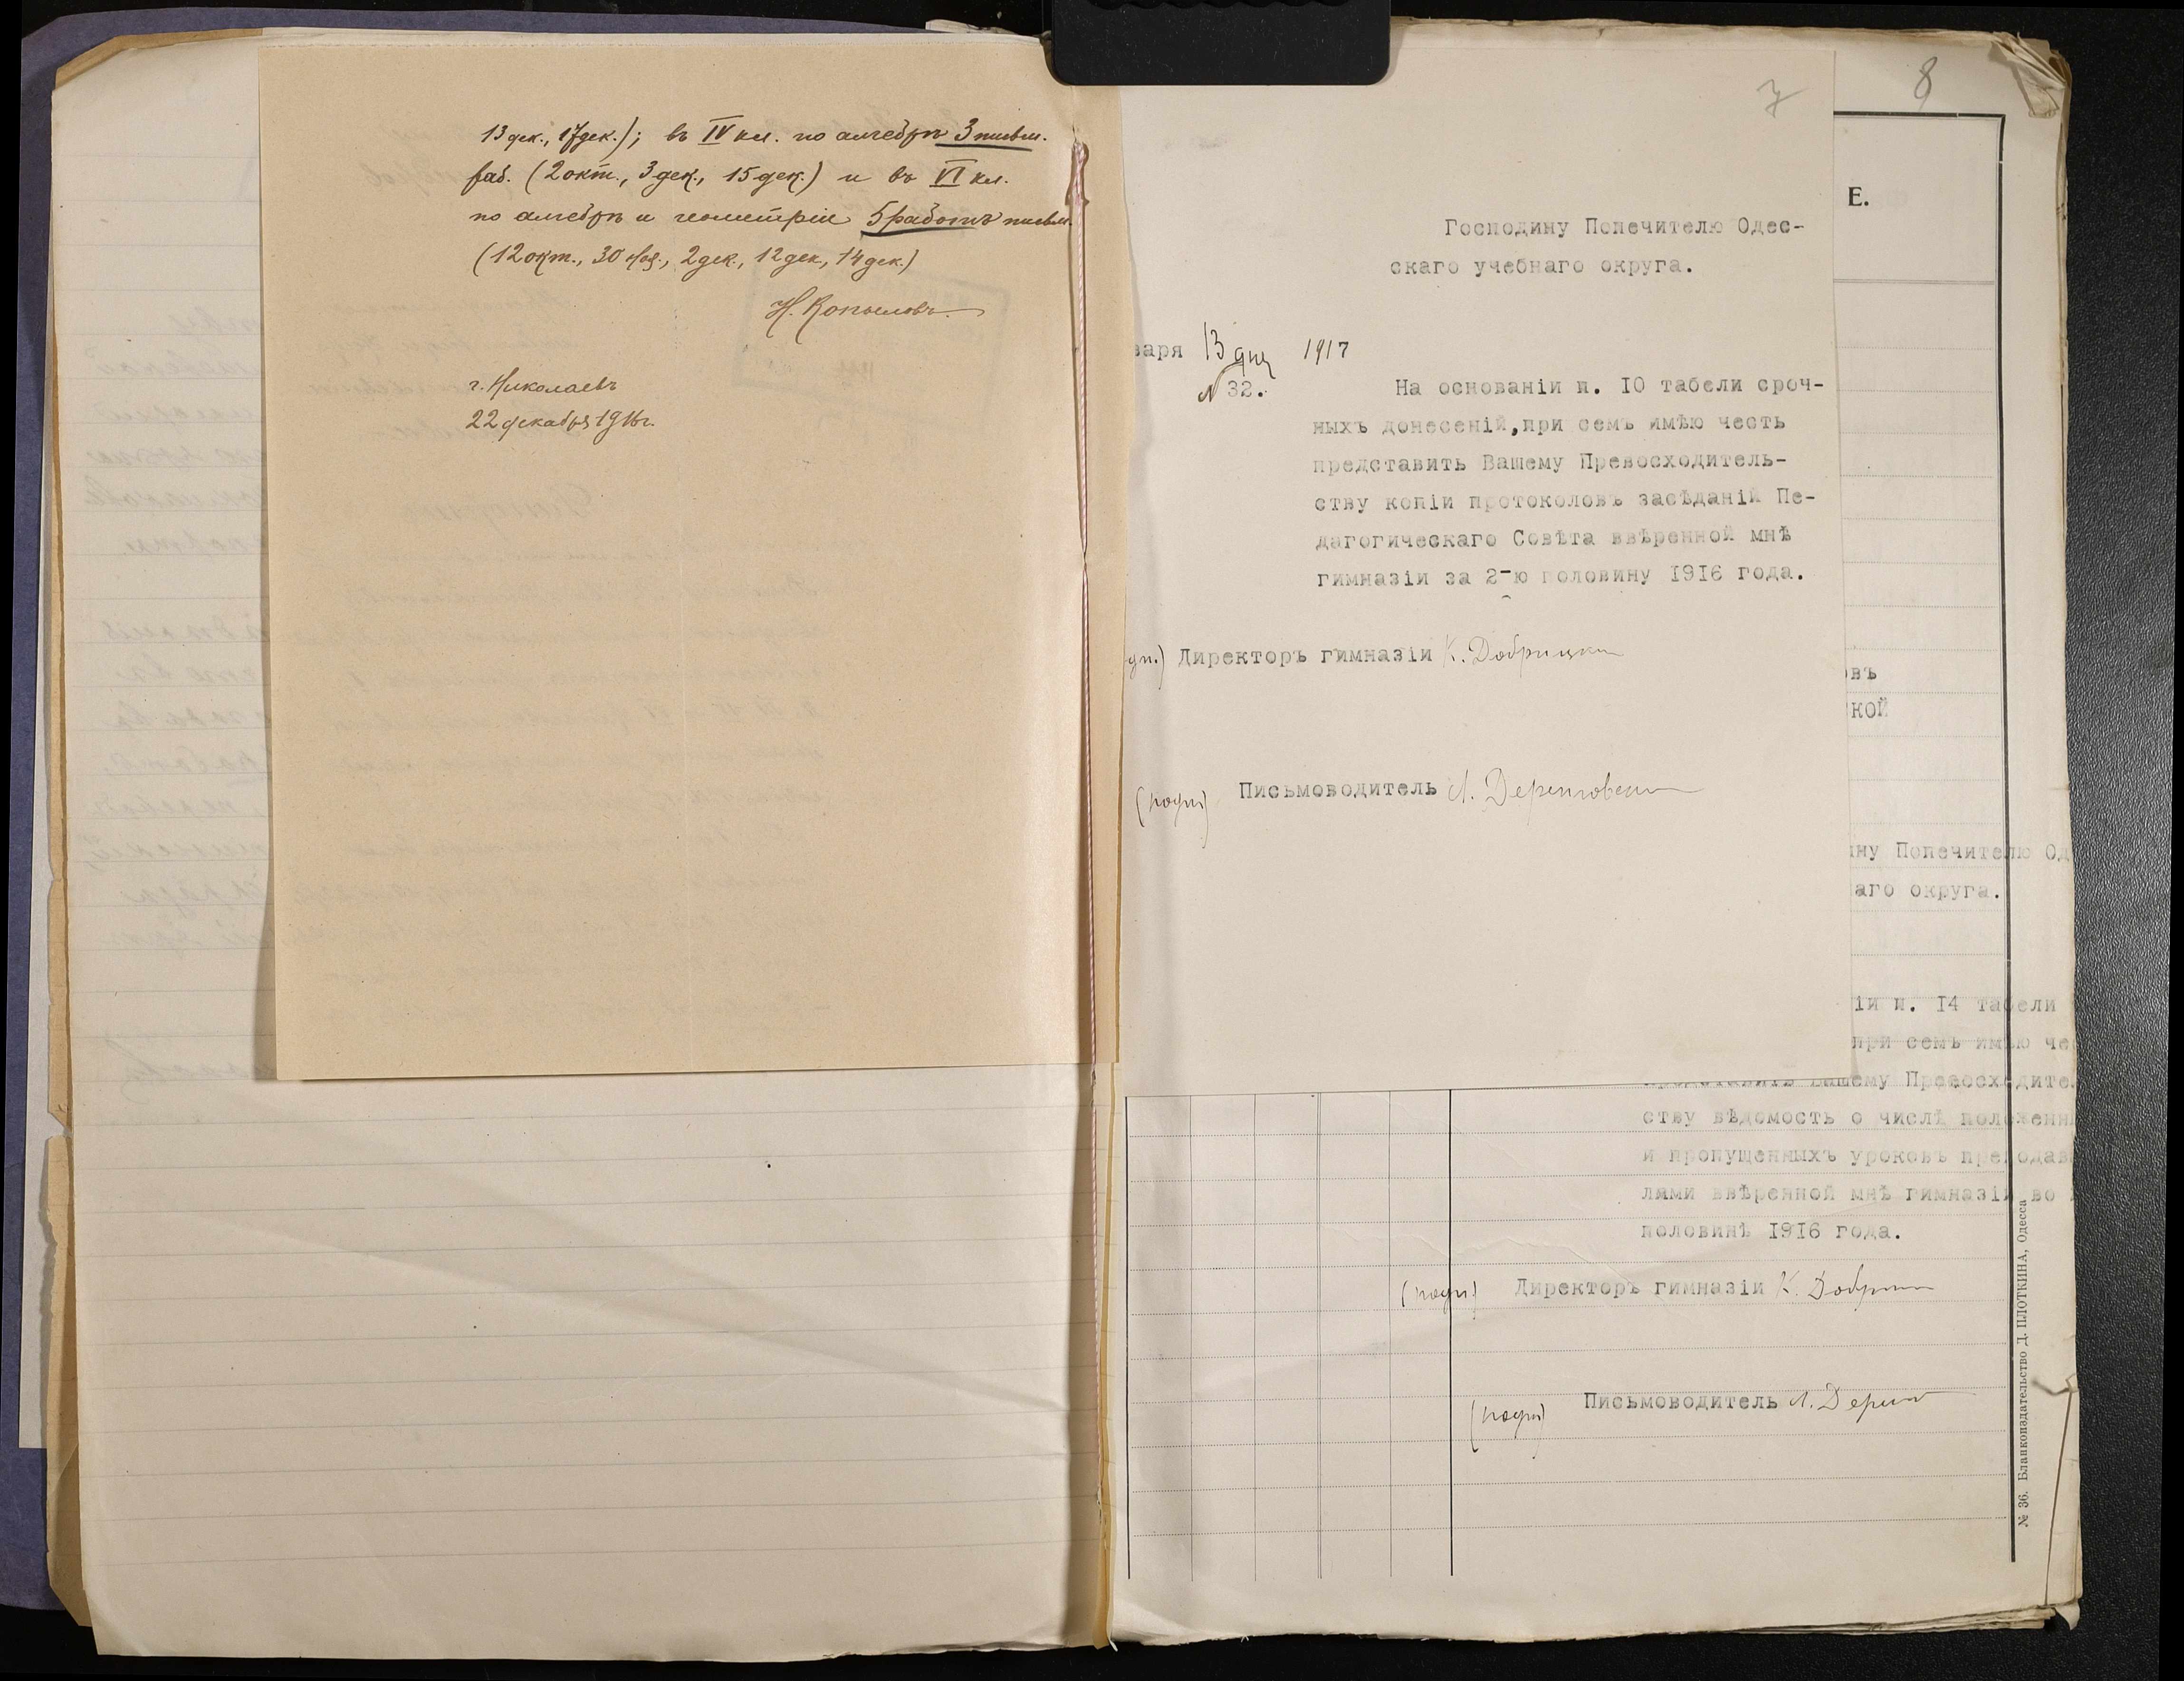 13 дек., 17 дек.); въ IV кл. по алгебрѣ 3 письм.
раб. (2 окт., 3 дек., 15 дек.) и въ VI кл.
по алгебрѣ и геометріи 5 работъ письм.
(12 окт., 30 ноя., 2 дек., 12 дек., 14 дек.)
Н. Копыловъ.
г. Николаевъ
22 декабря 1916 г.
7
Господину Попечителю Одес-
скаго учебнаго округа.
варя 13 дня 1917
№ 32.
На основаніи п. 10 табели сроч-
ныхъ донесеній, при семъ имѣю честь
представить Вашему Превосходитель-
ству копіи протоколовъ засѣданій Пе-
дагогическаго Совѣта ввѣренной мнѣ
гимназіи за 2-ю половину 1916 года.
Директоръ гимназіи К. Добрицкій
(подп) Письмоводитель
8
Е.
овъ
кой
ину Попечителю Од
аго округа.
іи п. 14 табели
при семъ имѣю че
представить Вашему Превосходите
ству вѣдомость о числѣ положенн
и пропущенныхъ уроковъ преподав
лями ввѣренной мнѣ гимназіи во
половинѣ 1916 года.
(подп) Директоръ гимназіи К. Добри
(подп) Письмоводитель
№ 36. Бланкоиздательство Д. ПЛОТКИНА, Одесса